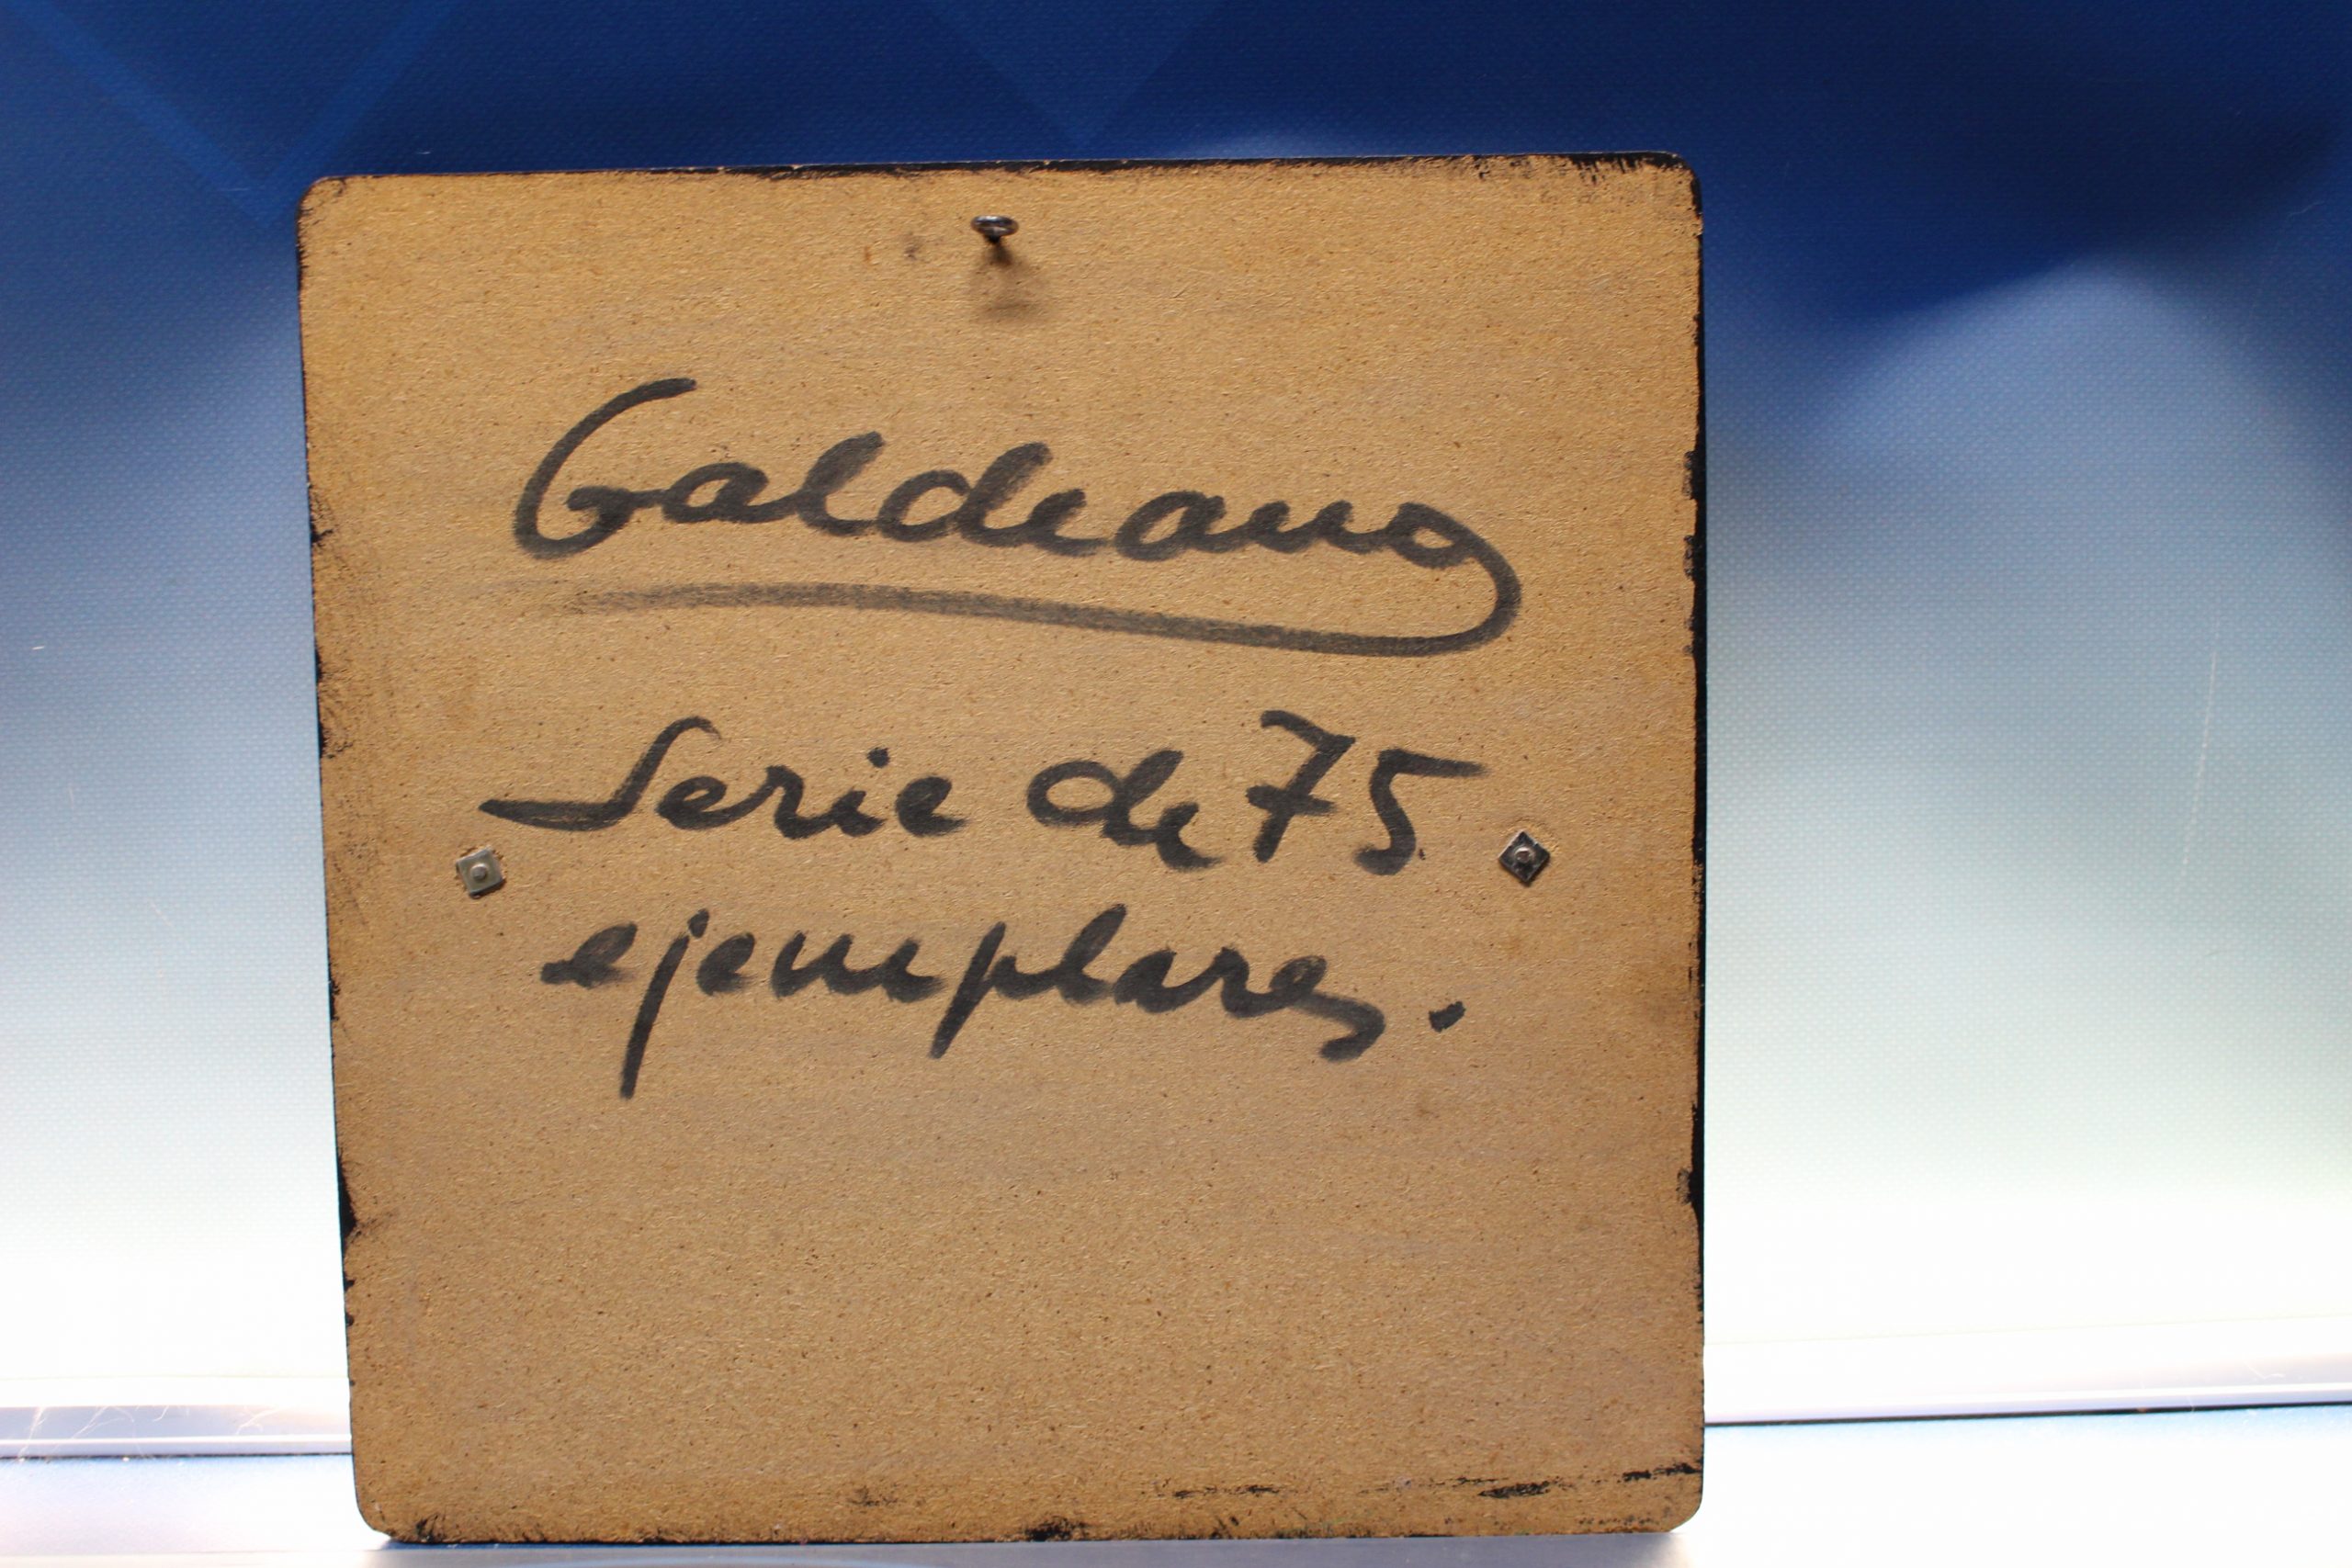 Galdeano
Serie de 75
ejemplares.